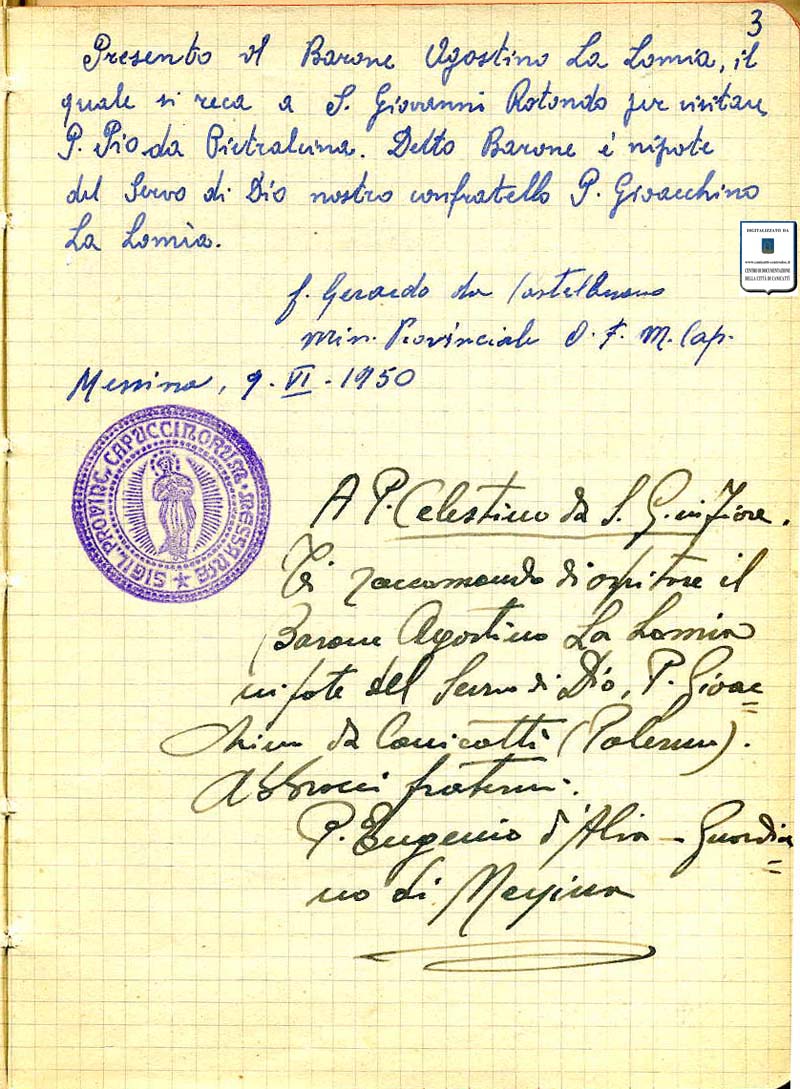 3
Presento il Barone Agostino La Lomia, il
quale si reca a S. Giovanni Rotondo per visitare
P. Pio da Pietralcina. Detto Barone è nipote
del Servo di Dio nostro confratello P. Gioacchino
La Lomia.
f. Gerardo da Castelbuono
Min. Provinciale O. F. M. Cap.
Messina, 9. VI. 1950
SIGIL. PROVINC. CAPUCCINORUM MESSANAE
DIGITALIZZATO DA
www.canicatti-centrodoc.it
CENTRO DI DOCUMENTAZIONE
DELLA CITTÀ DI CANICATTÌ
A P. Celestino da S. G. in Fiore.
Ti raccomando di ospitare il
Barone Agostino La Lomia
nipote del Servo di Dio, P. Gioac=
chino da Canicattì (Palermo).
Abbracci fraterni.
P. Eugenio d'Alia - Guardia=
no di Messina